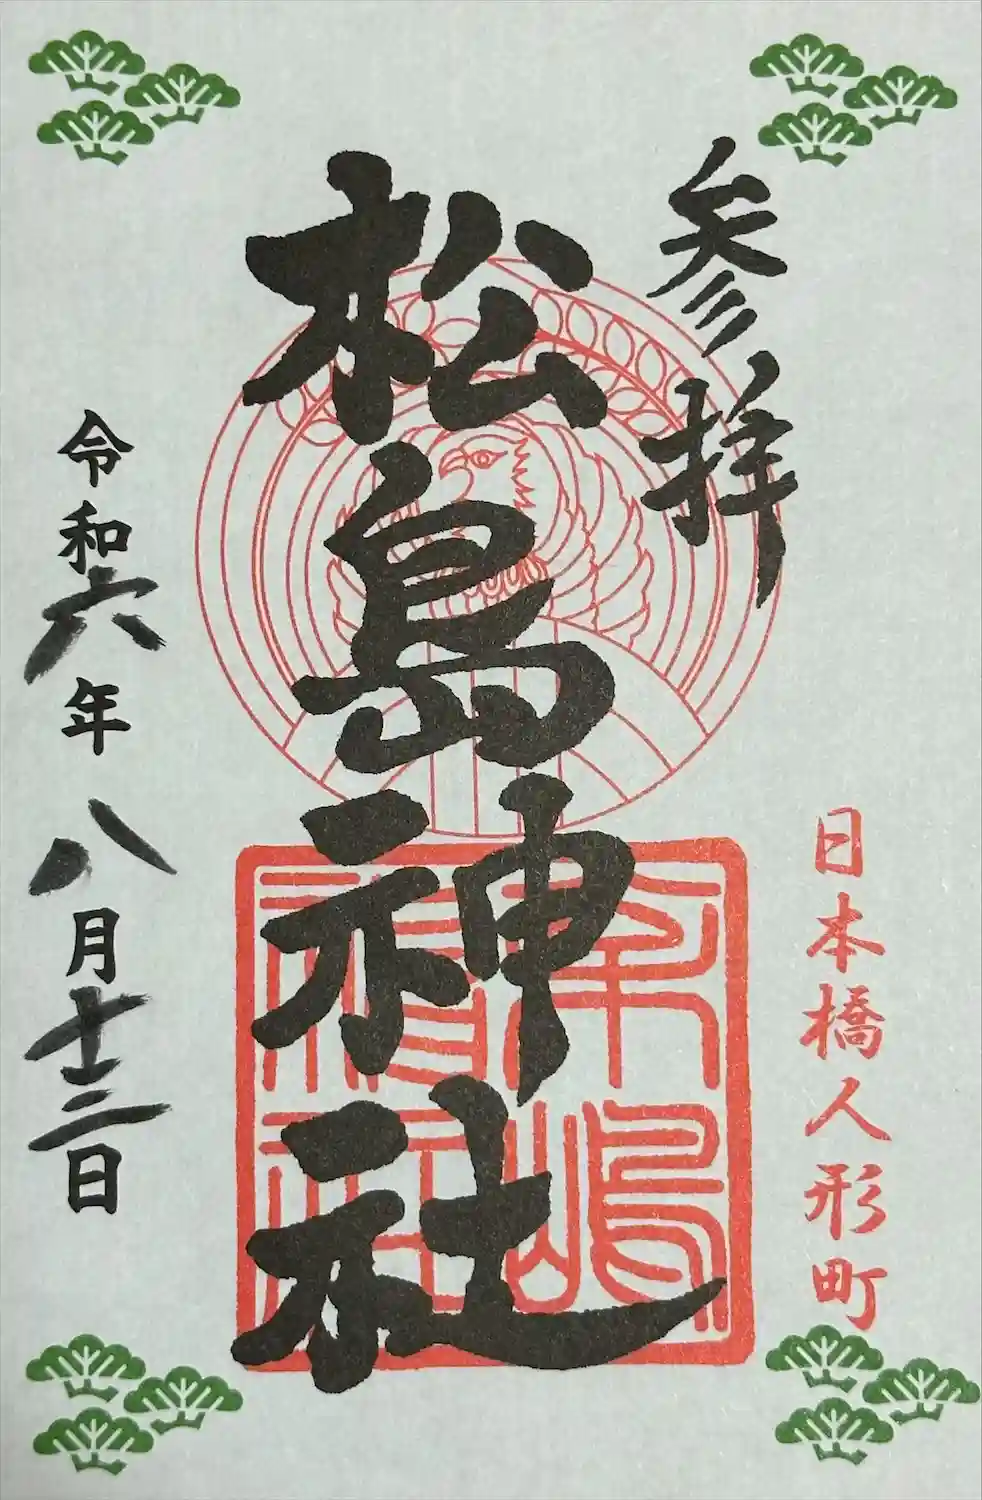 参拝
日本橋人形町
松島神社
令和六年八月十三日